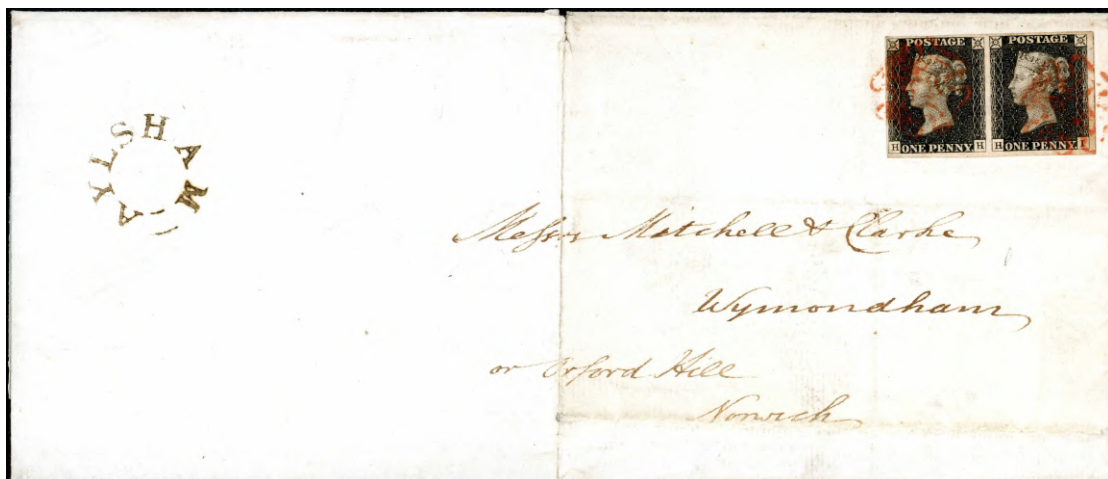 AYLSHAM
POSTAGE POSTAGE
H ONE PENNY H H ONE PENNY I
Messrs Mitchell & Clarke
Wymondham
or Orford Hill
Norwich